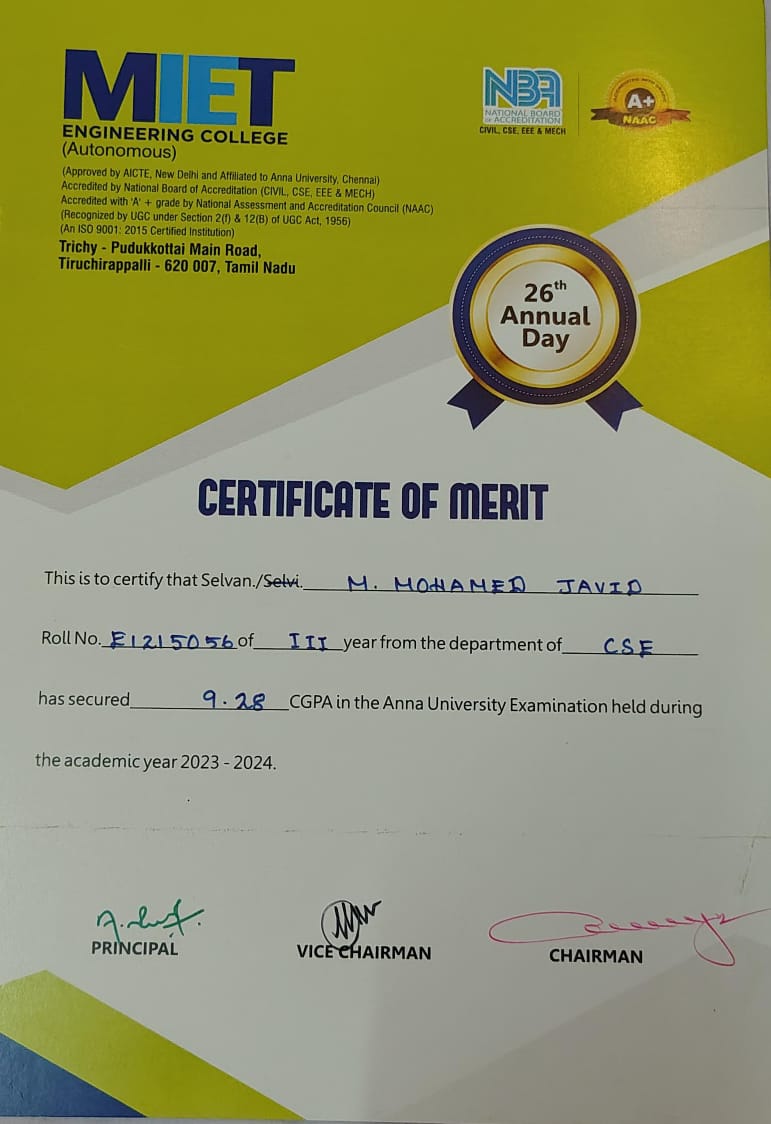 MIET
ENGINEERING COLLEGE
(Autonomous)
(Approved by AICTE, New Delhi and Affiliated to Anna University, Chennai)
Accredited by National Board of Accreditation (CIVIL, CSE, EEE & MECH)
Accredited with 'A' + grade by National Assessment and Accreditation Council (NAAC)
(Recognized by UGC under Section 2(f) & 12(B) of UGC Act, 1956)
(An ISO 9001: 2015 Certified Institution)
Trichy - Pudukkottai Main Road,
Tiruchirappalli - 620 007, Tamil Nadu
NBA
NATIONAL BOARD
OF ACCREDITATION
CIVIL, CSE, EEE & MECH
A+
NAAC
26th
Annual
Day
CERTIFICATE OF MERIT
This is to certify that Selvan./Selvi. M. MOHAMED JAVID
Roll No. E1215056 of III year from the department of CSE
has secured 9.28 CGPA in the Anna University Examination held during
the academic year 2023 - 2024.
PRINCIPAL
VICE CHAIRMAN
CHAIRMAN